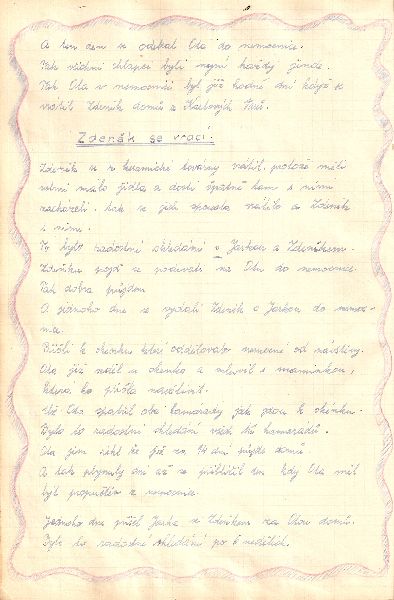 A ten den se odebral Ota do nemocnice.
Tak všichni chlapci byli nejní každý jinde.
Tak Ota v nemocnici byl již hodně dní když se
vrátil Zdeněk domů z Karlových Varů.
Zdeněk se vrací!
Zdeněk se z keramické továrny vrátil, protože měli
velmi málo jídla a dosti špatně tam s nimi
zacházeli. tak se jich spousta vrátilo a Zdeněk
s nimi.
To bylo radostné shledání s Jarkou a Zdeňkem.
Zdeňku pojď se podívati na Otu do nemocnice.
Tak dobra pujdem.
A jednoho dne se vydali Zdeněk s Jarkou do nemoc-
nice.
Přišli k okénku které oddělovalo nemocné od návštěvy.
Ota již stál u okénka a mluvil s maminkou,
která ho přišla navštívit.
Už Ota spatřil oba kamarády jak jdou k okénku.
Bylo to radostné shledání všech tří kamarádů.
Ota jim řekl že již za 14 dní půjde domů.
A tak plynuly dni až se přiblížil den kdy Ota měl
být propuštěn z nemocnice.
Jednoho dne přišel Jarka se Zdeňkem za Otou domů.
Bylo to radostné shledání po 6 nedělích.